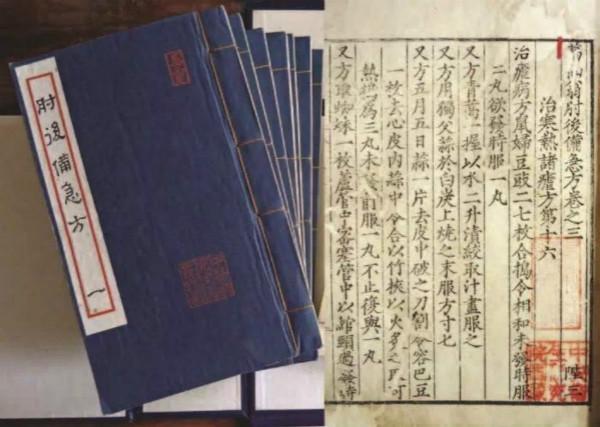 肘後備急方
一
葛仙翁肘後備急方卷之三
治寒熱諸瘧方第十六
治瘧病方鼠婦豆豉二七枚合搗令相和未發時服
二丸欲發時服一丸
又方青蒿一握以水二升漬絞取汁盡服之
又方用獨父蒜於白炭上燒之末服方寸七
又方五月五日蒜一片去皮中破之刀割令容巴豆
一枚去心皮內蒜中令合以竹挾以火炙之取可
熱搗為三丸未發前服一丸不止復與一丸
又方取蜘蛛一枚蘆管中密塞管中以綰頭過發時
陛三